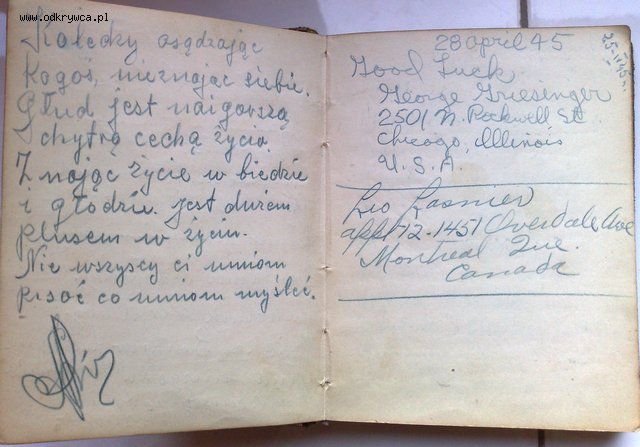 www.odkrywca.pl
Kolędzy osądzając
kogoś, nieznając siebie.
Głud jest naigorszą
chytrą cechą życia.
Znając życie w biedzie
i głodzie jest dużem
plusem w życiu.
Nie wszyscy ci umiom
pisać co umiom myśleć.
28 april 45
Good Luck
George Griesenger
2501 N. Rockwell St
Chicago, Illinois
U.S.A.
Leo Lasnier
appt 12-1451 Overdale Ave
Montreal Que.
Canada